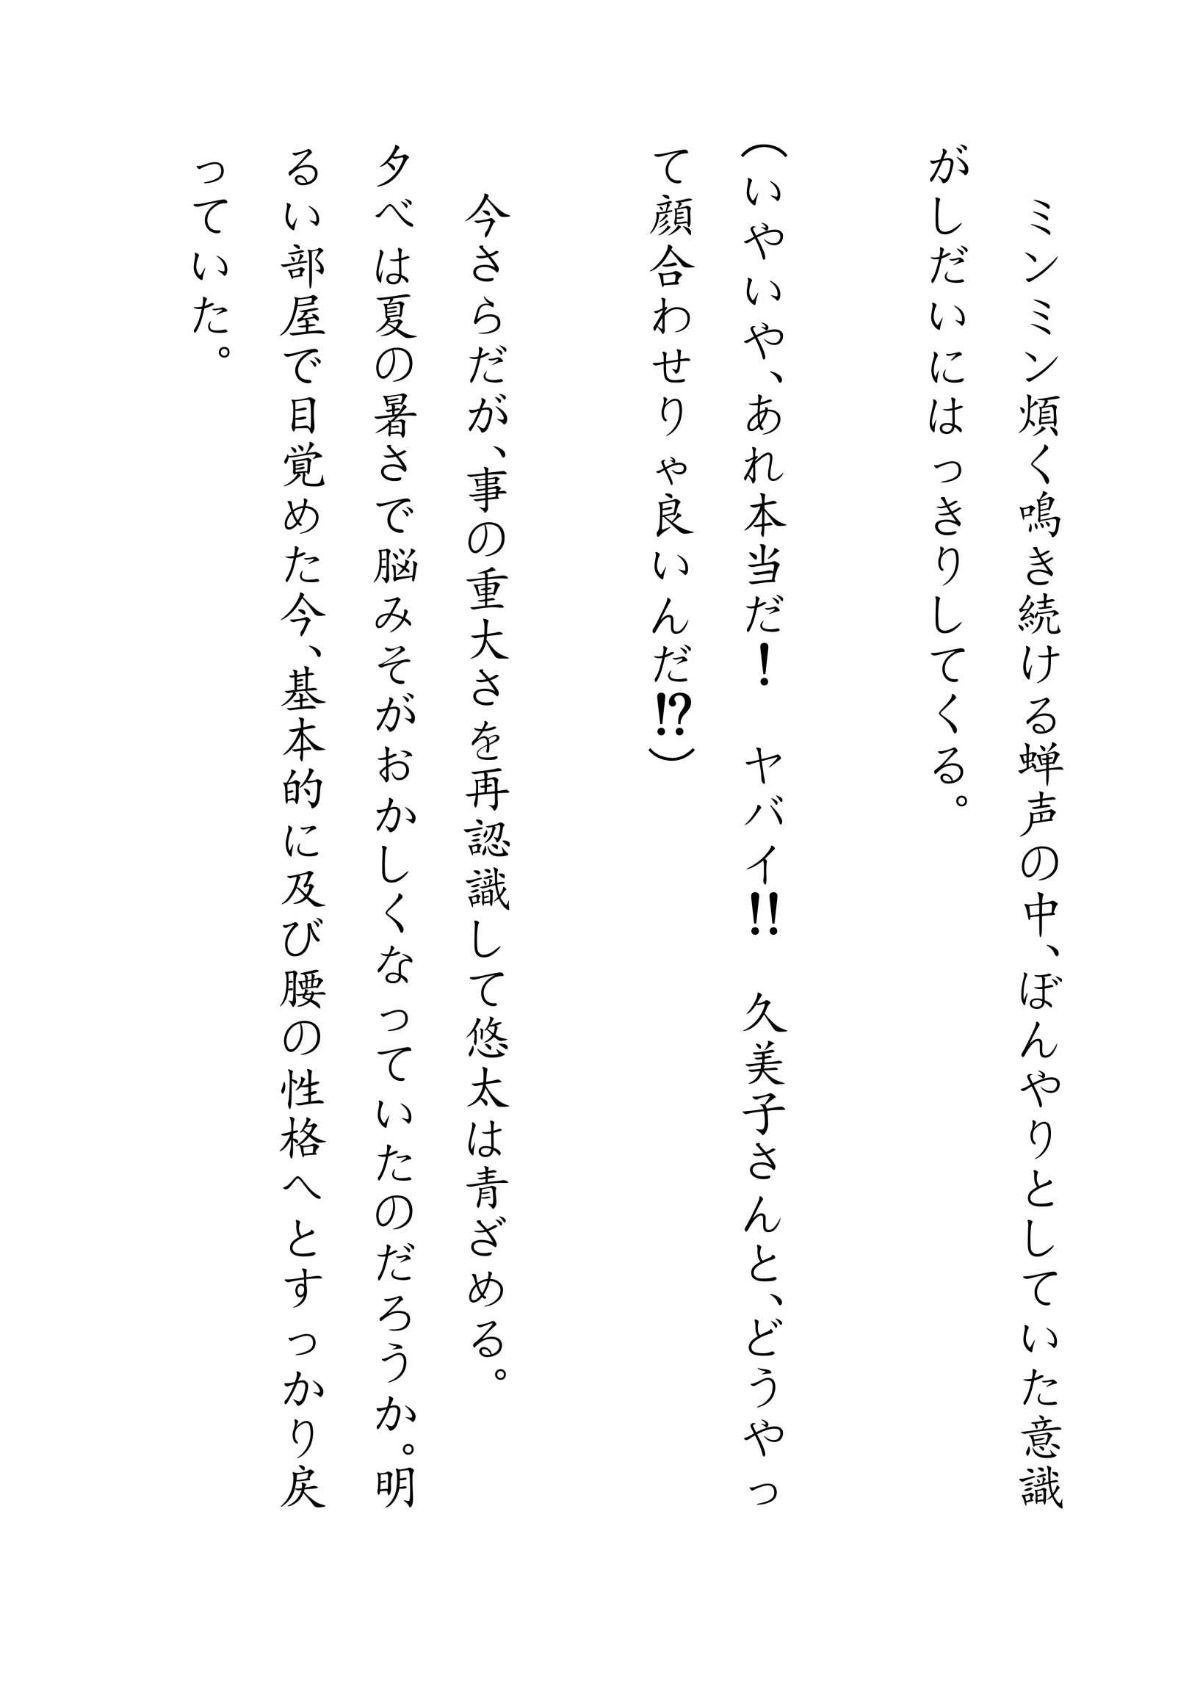 ミンミン煩く鳴き続ける蝉声の中、ぼんやりとしていた意識
がしだいにはっきりしてくる。
（いやいや、あれ本当だ！　ヤバイ!!　久美子さんと、どうやっ
て顔合わせりゃ良いんだ!?）
　今さらだが、事の重大さを再認識して悠太は青ざめる。
夕べは夏の暑さで脳みそがおかしくなっていたのだろうか。明
るい部屋で目覚めた今、基本的に及び腰の性格へとすっかり戻
っていた。